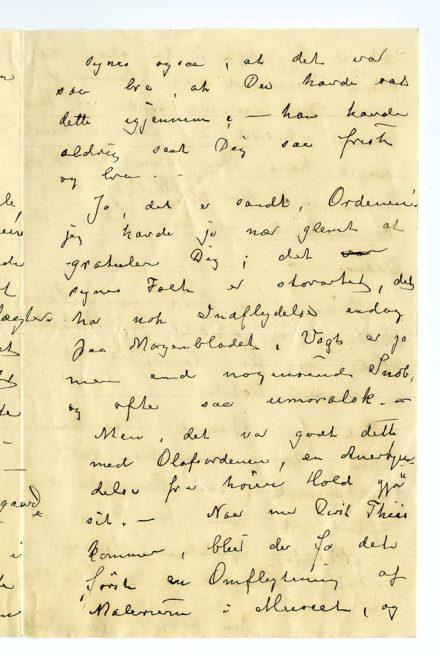 synes ogsaa, at det var
saa bra, at Du havde sat
dette igjennem; — han havde
aldrig seet Dig saa frisk
og bra. —
Ja, det er sandt, Ordenen!
jeg havde jo nær glemt at
gratulere Dig; det
synes Folk er storartet, det
har nok Indflydelse endog
paa Morgenbladet, Vogt er jo
men end nogensinde Snob,
og ofte saa umoralsk. —
Men, det var godt dette
med Olafsordenen, en Anerkjen-
delse fra høiere Hold gjør
sit. — Naar nu Thiis
kommer, blir der jo det
første en Omflytning af
Malerierne i Museet, og